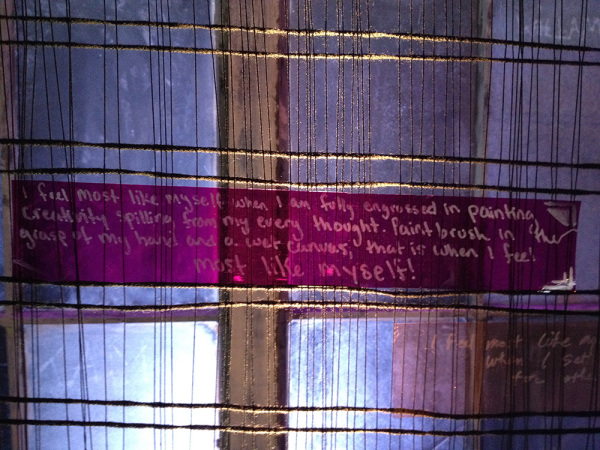 I feel most like myself when I am fully engrossed in painting.
Creativity spilling from my every thought. Paintbrush in the
grasp of my hand and a wet canvas, that is when I feel
most like myself!
I feel most like my
when I set
for oth